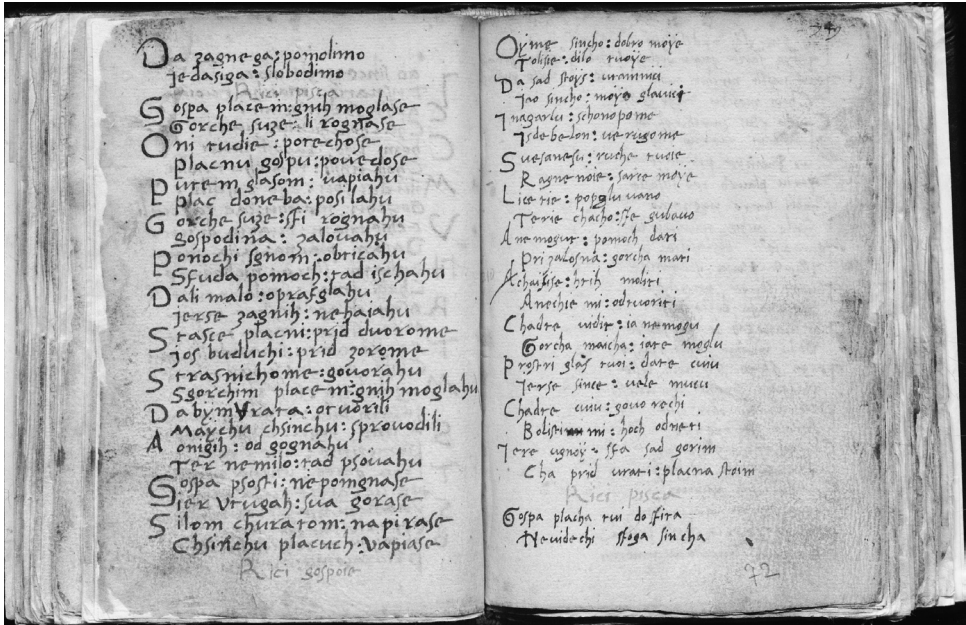 Da zagnega: pomolimo
Jedasiga: slobodimo
Rici pisca
Gospa placem: gnih moglase
Gorche suze: li rognase
Oni tudie: potechose
placnu gospu: povedose
Putem glasom: vapiahu
plac doneba: posilahu
Gorche suze: sfi rognahu
Gospodina: zalovahu
Ponochi sgnom: obticahu
Sfuda pomoch: tad ischahu
Dali malo: oprasglahu
Jerse zagnih: nehaiahu
Stasce placni: prid dvorome
Jos buduchi: prid zorome
Strasnichome: govorahu
Sgorchim placem: gnih moglahu
Dabijm vrata: otvorili
Maychu chsinchu: sprovodili
Aonigih: od gognahu
Ter nemilo: tad psovahu
Gospa psosti: nepomgnase
Jer vtugah: sva gorase
Silom churatom: napirase
Chsinchu placuch: vapiase
Rici gospoie
Oyme sincho: dobro moye
Tolisie: dilo tvoye
Da sad stoys: utamnici
Jao sincho: moya glavici
Inagarlu: schonopome
Isdebelom: verugome
Svesanesu: ruche tvoie
Ragnenoie: sarce moye
Lice tie: popgluvano
Terie chacho: sfe gubavo
Anemogut: pomoch dati
Pri zalosna: gorcha mati
Achaitise: htih moliti
Anechie mi: odtvoriti
Chadte vidit: ia nemogu
Gorcha maicha: iate moglu
Prostri glas tvoi: date cuiu
Jerse since: vele mucu
Chadte cuiu: govorechi
Bolisti mi: hoch odneti
Jere ugnoy: sfa sad gorim
Cha prid vrati: placna stoim
Rici pisca
Gospa placha tui dosfita
Nevidechi sfoga sincha
72